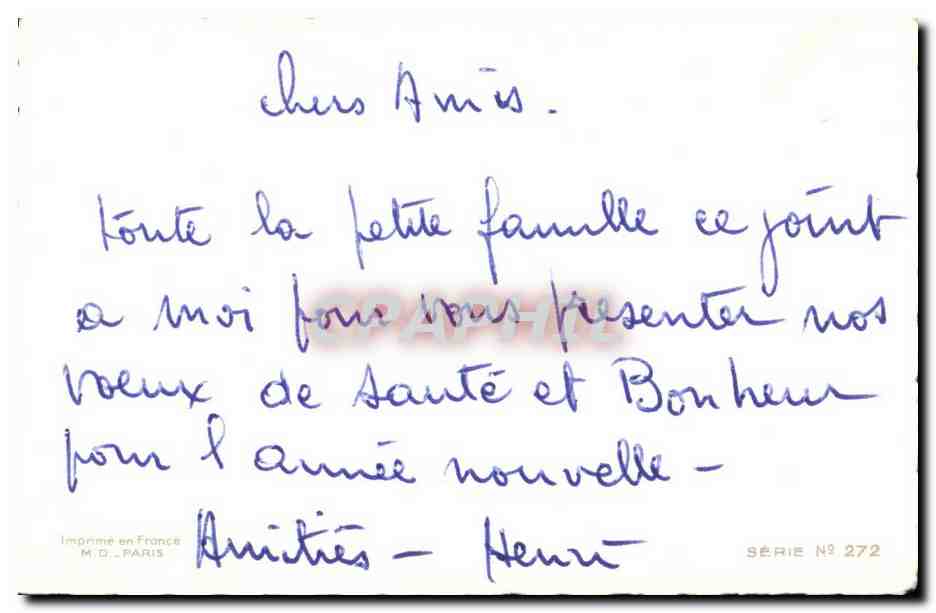 chers Amis.
toute la petite famille ce joint
a moi pour vous presenter nos
voeux de santé et Bonheur
pour l'année nouvelle -
Amitiés - Henri
Imprimé en France
M.D. - PARIS
SÉRIE Nº 272
CPAPHIL